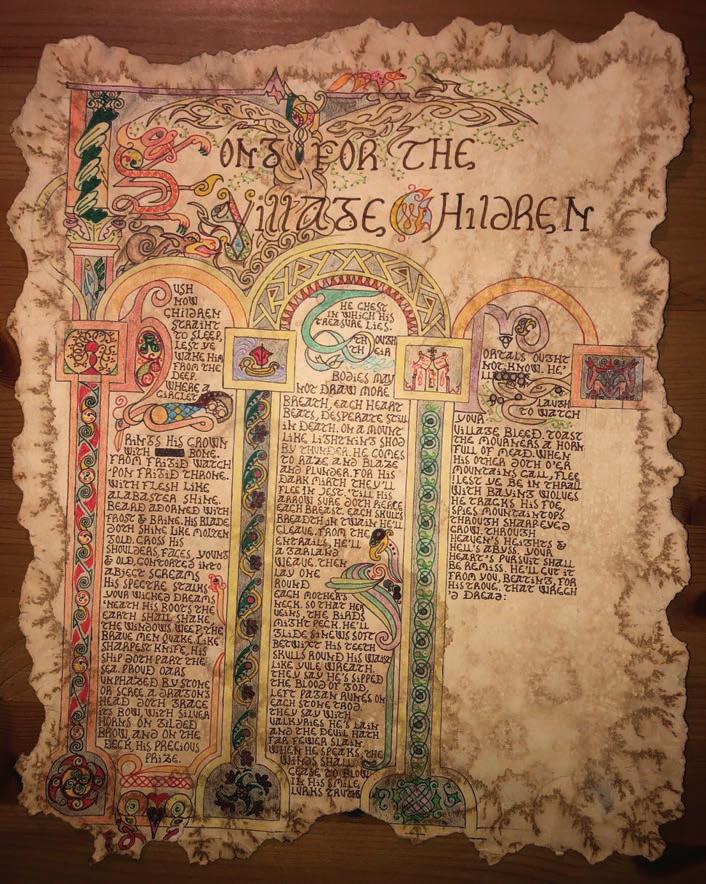 Song for the
Village Children
Hush
now
children
straint
to sleep,
lest ye
wake him
from the
deep.
Where a
circlet
rings his crown
with bone.
From frigid watch
'pon frigid throne.
With flesh like
alabaster shine.
Beard adorned with
frost & brine. His blade
doth shine like molten
gold. Cross his
shoulders, faces, young
& old, contorted into
abject screams
His spectre stalks
your wicked dreams
'neath his boots the
earth shall shake
the windows weep, the
brave men quake. Like
sharpest knife, his
ship doth part the
sea. Proud oars
unphazed by stone
or scree. A dragon's
head doth grace
its bow, with silver
horns on gilded
brow, and on the
deck, his precious
prize.
The chest
in which his
treasure lies.
Though
their
bodies may
not draw more
breath, each heart
beats, desperate still
in death. On a mount
like lightning shod
by thunder. He comes
to raze and blaze
and plunder for his
dark mirth they'll
flee in jest. 'till his
arrow sure doth pierce
each breast. Each hours
breadth in twain he'll
cleave, from the
entrails, he'll
a garland
weave, then
lay one
round
each mother's
neck. So that her
veins, the birds
might peck. He'll
glide sinews soft
betwixt his teeth
skulls round his waist
like yule wreath.
They say he's sipped
the blood of god,
left pagan runes on
each stone trod.
They say with
valkyries he's lain
and the devil hath
far fewer slain
when he speaks, the
winds shall
cease to blow
in his smile
lurks truths
portals ought
not know. He'
ll
laugh
to watch
your
village bleed, toast
the mourners a horn
full of mead. When
his other doth o'er
mountains call, flee
lest ye be in thrall
with baying wolves
he tracks his foe,
spies mountaintops
through sharp eyed
crow. Through
heaven's heights &
hell's abyss. Your
heart's pursuit shall
be remiss. He'll cut it
from you, beating, for
his trove, that wrech
'd dread: